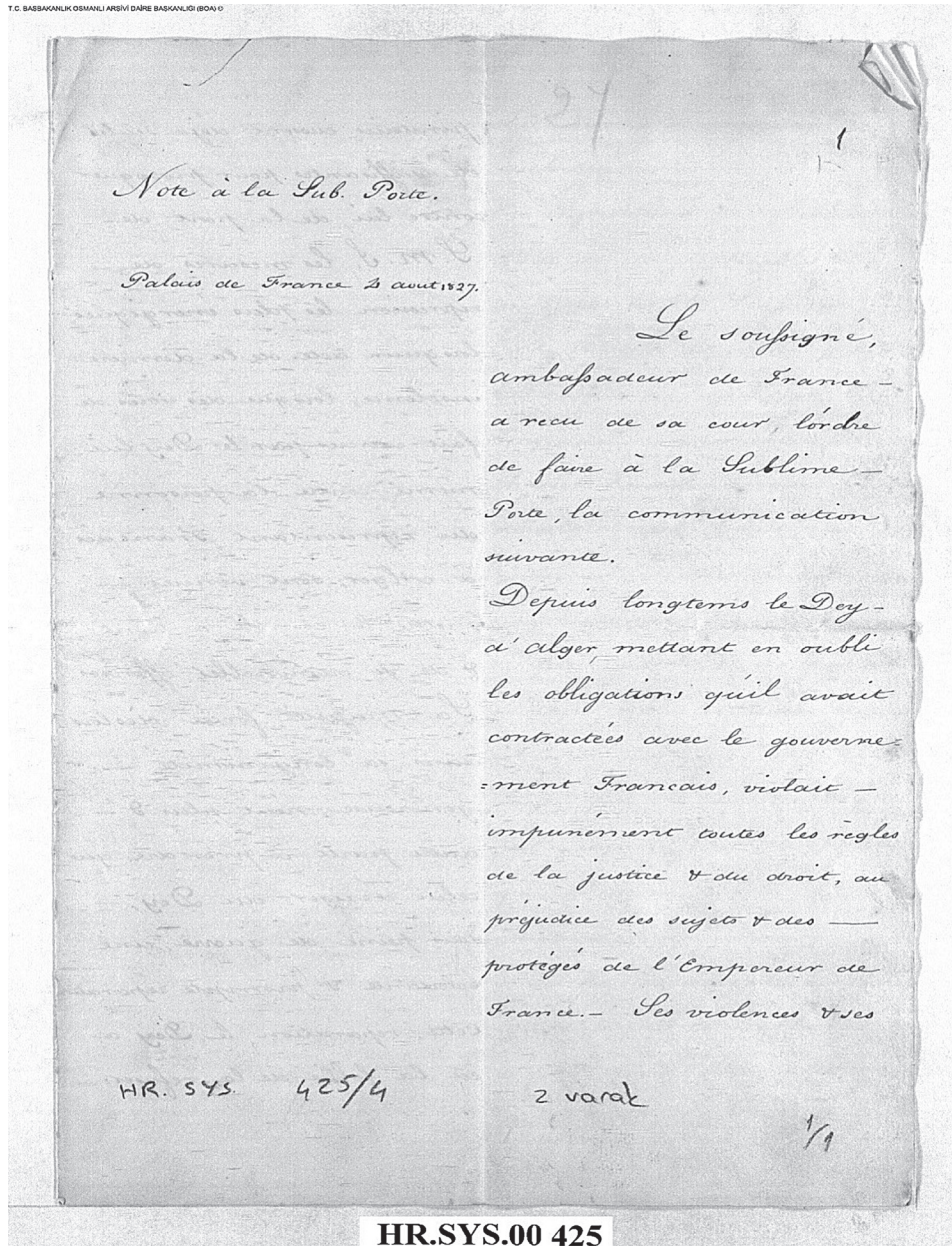 T.C. BAŞBAKANLIK OSMANLI ARŞİVİ DAİRE BAŞKANLIĞI (BOA) ©
1
Note à la Sub. Porte.
Palais de France 4 aout 1827.
Le soussigné,
ambassadeur de France –
a recu de sa cour, l'órdre
de faire à la Sublime –
Porte, la communication
suivante.
Depuis longtems le Dey –
d'alger, mettant en oubli
les obligations qu'il avait
contractées avec le gouverne=
=ment Francais, violait –
impunément toutes les règles
de la justice & du droit, au
préjudice des sujets & des —
protégés de l'Empereur de
France. – Ses violences & ses
HR. SYS. 425/4
2 varak
1/1
HR.SYS.00 425